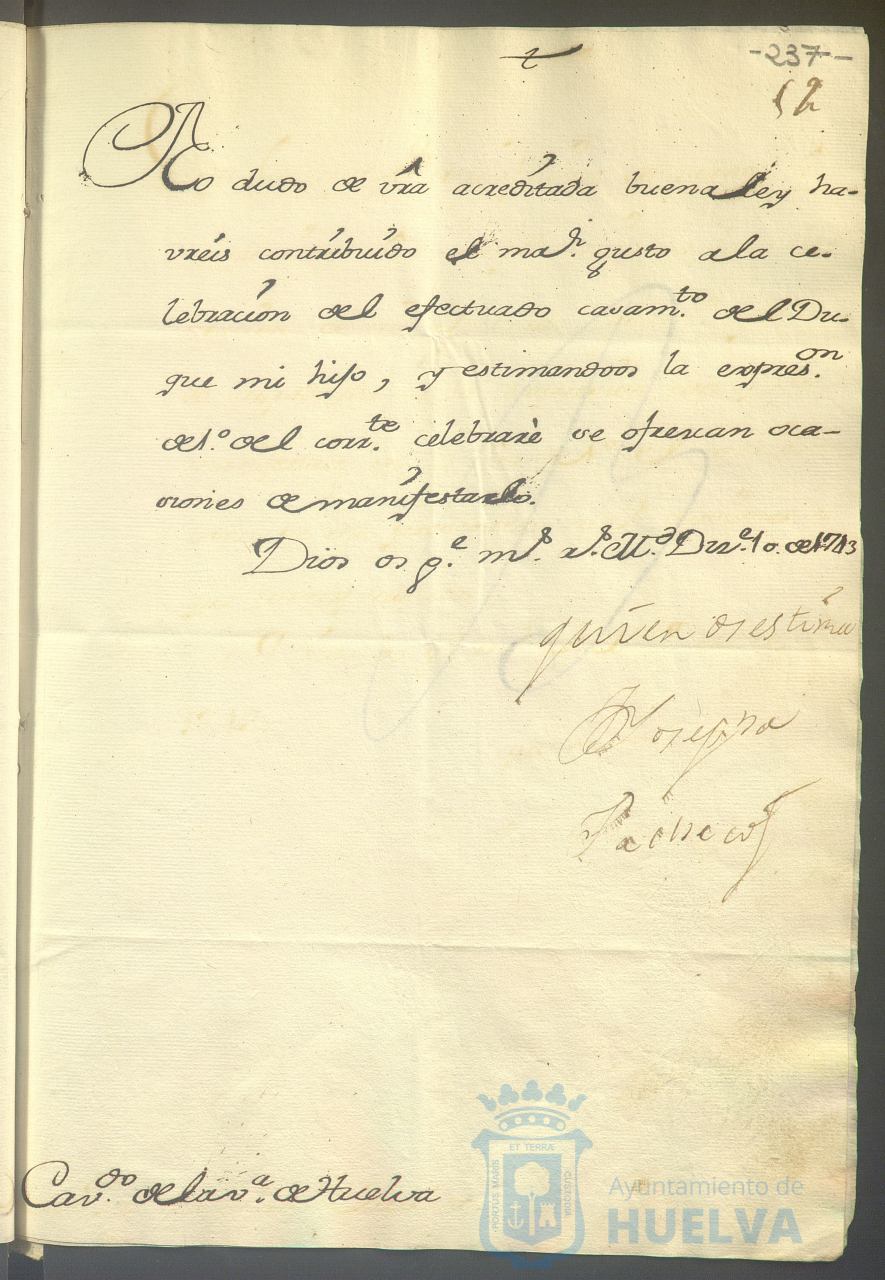 -237-
12
No dudo de vrā acreditada buena ley ha-
vréis contribuido el maỏr. gusto a la ce-
lebracion del efectuado casam.to del Du-
que mi hijo, y estimandoos la expres.on
de 1.º del corr.te celebraré se ofrescan oca-
siones de manifestarlo.
Dios os g.e m.s a.s M.d Diz.e 10. de 1713
quien os estima
Josepha
Pacheco
Cav.do de la v.a de Huelva
ET TERRÆ
PORTUS MARIS
CUSTODIA
Ayuntamiento de
HUELVA